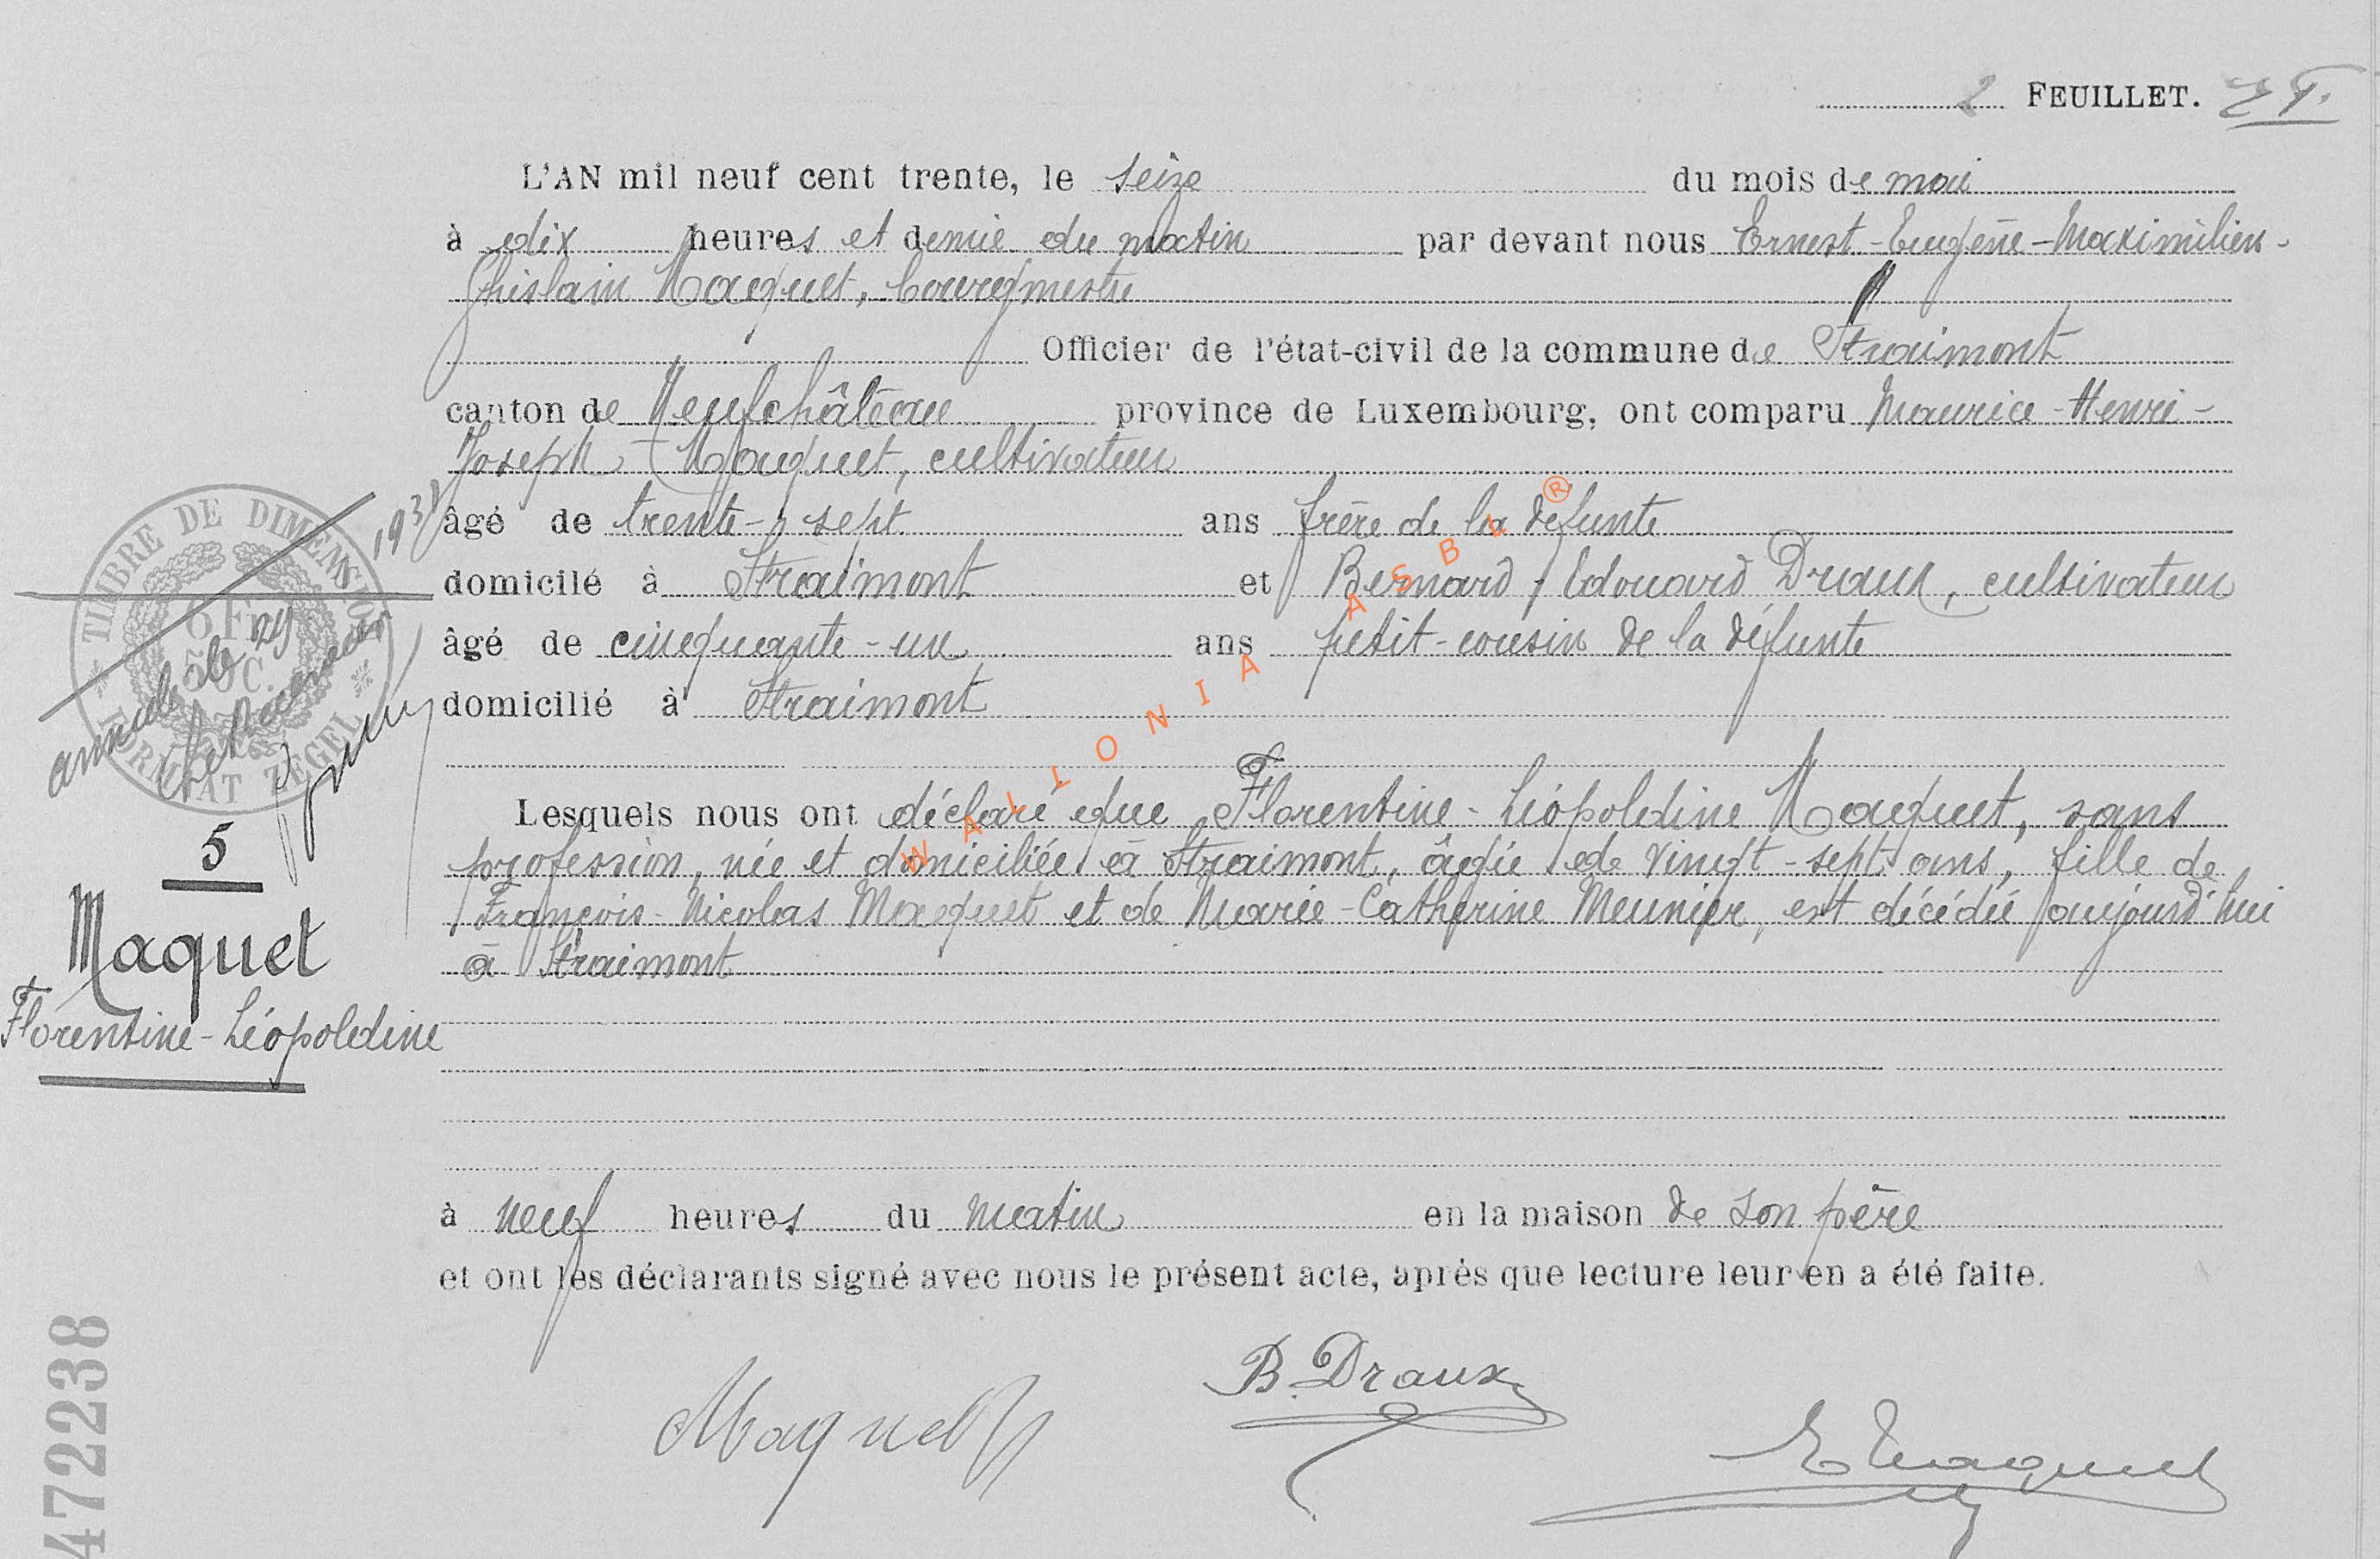 2 FEUILLET.
L'AN mil neuf cent trente, le seize du mois de mai
à dix heures et demie du matin par devant nous Ernest-Eugène-Maximilien-
Ghislain Maquet, bourgmestre
Officier de l'état-civil de la commune de Straimont
canton de Neufchâteau province de Luxembourg, ont comparu Maurice-Henri-
Joseph Maquet, cultivateur
âgé de trente-sept ans frère de la défunte
domicilé à Straimont et Bernard, Edouard Draux, cultivateur
âgé de cinquante-un ans petit-cousin de la défunte
domicilié à Straimont
Lesquels nous ont déclaré que Florentine-Léopoldine Maquet, sans
profession, née et domiciliée à Straimont, âgée de vingt-sept ans, fille de
François-Nicolas Maquet et de Marie-Catherine Meunier, est décédée aujourd'hui
à Straimont
à neuf heures du matin en la maison de son père
et ont les déclarants signé avec nous le présent acte, après que lecture leur en a été faite.
Maquet
B. Draux
E Maquet
TIMBRE DE DIMENSION
6 F.
50 C.
FORMAAT ZEGEL
5
Maquet
Florentine-Léopoldine
472238
WALLONIA ASBL ®